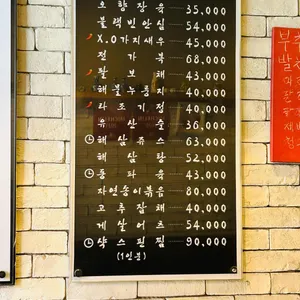 오향장육 35,000
블랙빈안심 54,000
X.O가지새우 45,000
전가복 68,000
팔보채 43,000
해물누룽지 40,000
라조기정 40,000
유산슬 36,000
해삼쥬스 63,000
해삼탕 52,000
동파육 43,000
자연송이볶음 80,000
고루잡채 40,000
게살어츠 54,000
샥스핀찜 90,000
(1인분)